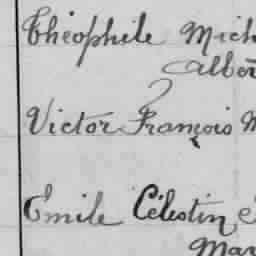 Théophile Mich
Albér
Victor François M
Emile Célestin E
Mar